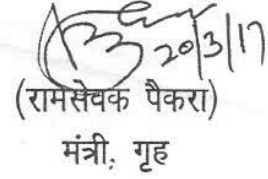 20/3/17
(रामसेवक पैकरा)
मंत्री, गृह